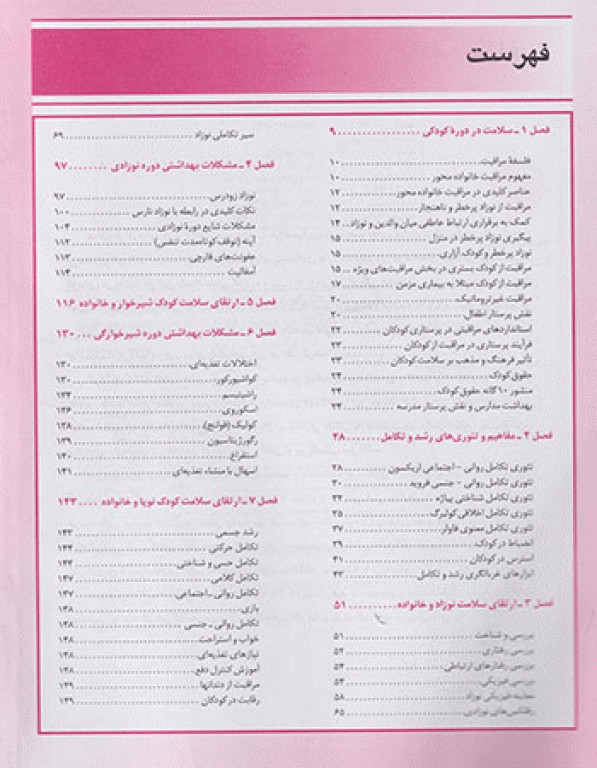 فهرست
فصل ۱ ـ سلامت در دورهٔ کودکی .................. ۹
فلسفهٔ مراقبت ........ ۱۰
مفهوم مراقبت خانواده محور ........ ۱۰
عناصر کلیدی در مراقبت خانواده محور ........ ۱۲
مراقبت از نوزاد پرخطر و ناهنجار ........ ۱۲
کمک به برقراری ارتباط عاطفی میان والدین و نوزاد .. ۱۴
پیگیری نوزاد پرخطر در منزل ........ ۱۵
نوزاد پرخطر و کودک آزاری ........ ۱۵
مراقبت از کودک بستری در بخش مراقبت‌های ویژه .. ۱۵
مراقبت از کودک مبتلا به بیماری مزمن ........ ۱۷
مراقبت غیرتروماتیک ........ ۲۰
نقش پرستار اطفال ........ ۲۰
استانداردهای مراقبتی در پرستاری کودکان ........ ۲۲
فرآیند پرستاری در مراقبت از کودکان ........ ۲۳
تأثیر فرهنگ و مذهب بر سلامت کودکان ........ ۲۳
حقوق کودک ........ ۲۴
منشور ۱۰ گانه حقوق کودک ........ ۲۴
بهداشت مدارس و نقش پرستار مدرسه ........ ۲۴
فصل ۲ ـ مفاهیم و تئوری‌های رشد و تکامل ........ ۲۸
تئوری تکامل روانی - اجتماعی اریکسون ........ ۲۸
تئوری تکامل روانی - جنسی فروید ........ ۳۰
تئوری تکامل شناختی پیاژه ........ ۳۲
تئوری تکامل اخلاقی کولبرگ ........ ۳۵
تئوری تکامل معنوی فاولر ........ ۳۷
انضباط در کودک ........ ۳۹
استرس در کودکان ........ ۴۱
ابزارهای غربالگری رشد و تکامل ........ ۴۳
فصل ۳ ـ ارتقای سلامت نوزاد و خانواده .......... ۵۱
بررسی و شناخت ........ ۵۱
بررسی رفتاری ........ ۵۲
بررسی رفتارهای ارتباطی ........ ۵۴
بررسی فیزیکی ........ ۵۴
معاینه فیزیکی نوزاد ........ ۵۸
رفلکس‌های نوزادی ........ ۶۵
سیر تکاملی نوزاد ........ ۶۹
فصل ۴ ـ مشکلات بهداشتی دوره نوزادی ........ ۹۷
نوزاد زودرس ........ ۹۷
نکات کلیدی در رابطه با نوزاد نارس ........ ۱۰۰
مشکلات شایع دورهٔ نوزادی ........ ۱۰۴
آپنه (توقف کوتاه‌مدت تنفس) ........ ۱۱۲
عفونت‌های قارچی ........ ۱۱۳
آمفالیت ........ ۱۱۴
فصل ۵ ـ ارتقای سلامت کودک شیرخوار و خانواده ۱۱۶
فصل ۶ ـ مشکلات بهداشتی دوره شیرخوارگی ... ۱۳۰
اختلالات تغذیه‌ای ........ ۱۳۰
کواشیورکور ........ ۱۳۰
راشیتیسم ........ ۱۳۴
اسکوروی ........ ۱۳۶
کولیک (قولنج) ........ ۱۳۸
رگورژیتاسیون ........ ۱۳۹
استفراغ ........ ۱۴۰
اسهال با منشاء تغذیه‌ای ........ ۱۴۱
فصل ۷ ـ ارتقای سلامت کودک نوپا و خانواده .... ۱۴۳
رشد جسمی ........ ۱۴۳
تکامل حرکتی ........ ۱۴۴
تکامل حسی و شناختی ........ ۱۴۴
تکامل کلامی ........ ۱۴۷
تکامل روانی ـ اجتماعی ........ ۱۴۷
بازی ........ ۱۴۸
تکامل روانی ـ جنسی ........ ۱۴۸
خواب و استراحت ........ ۱۴۸
نیازهای تغذیه‌ای ........ ۱۴۸
آموزش کنترل دفع ........ ۱۴۸
مراقبت از دندانها ........ ۱۴۹
رقابت در کودکان ........ ۱۴۹